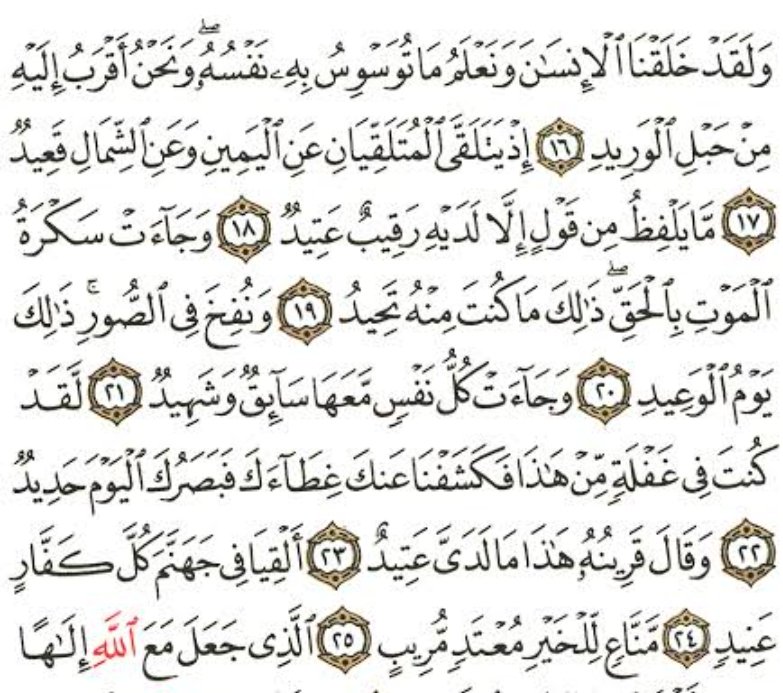 وَلَقَدْ خَلَقْنَا ٱلْإِنسَٰنَ وَنَعْلَمُ مَا تُوَسْوِسُ بِهِۦ نَفْسُهُۥۖ وَنَحْنُ أَقْرَبُ إِلَيْهِ
مِنْ حَبْلِ ٱلْوَرِيدِ ١٦ إِذْ يَتَلَقَّى ٱلْمُتَلَقِّيَانِ عَنِ ٱلْيَمِينِ وَعَنِ ٱلشِّمَالِ قَعِيدٌ
١٧ مَّا يَلْفِظُ مِن قَوْلٍ إِلَّا لَدَيْهِ رَقِيبٌ عَتِيدٌ ١٨ وَجَآءَتْ سَكْرَةُ
ٱلْمَوْتِ بِٱلْحَقِّۖ ذَٰلِكَ مَا كُنتَ مِنْهُ تَحِيدُ ١٩ وَنُفِخَ فِى ٱلصُّورِۚ ذَٰلِكَ
يَوْمُ ٱلْوَعِيدِ ٢٠ وَجَآءَتْ كُلُّ نَفْسٍ مَّعَهَا سَآئِقٌ وَشَهِيدٌ ٢١ لَّقَدْ
كُنتَ فِى غَفْلَةٍ مِّنْ هَٰذَا فَكَشَفْنَا عَنكَ غِطَآءَكَ فَبَصَرُكَ ٱلْيَوْمَ حَدِيدٌ
٢٢ وَقَالَ قَرِينُهُۥ هَٰذَا مَا لَدَىَّ عَتِيدٌ ٢٣ أَلْقِيَا فِى جَهَنَّمَ كُلَّ كَفَّارٍ
عَنِيدٍ ٢٤ مَّنَّاعٍ لِّلْخَيْرِ مُعْتَدٍ مُّرِيبٍ ٢٥ ٱلَّذِى جَعَلَ مَعَ ٱللَّهِ إِلَٰهًا